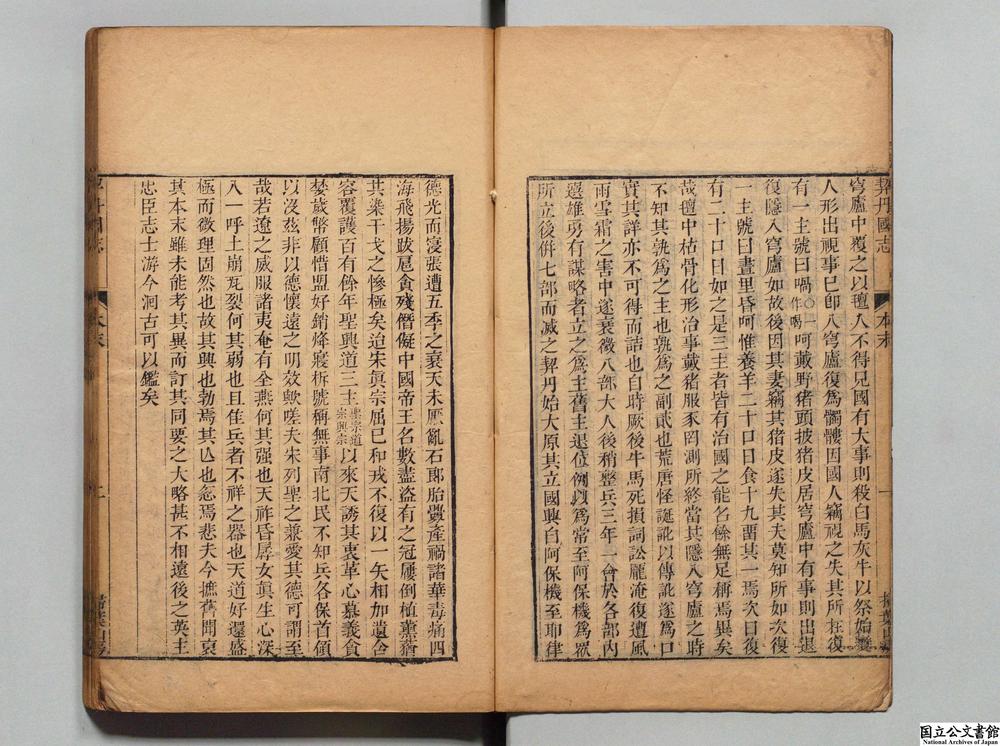 契丹國志
本末
一
掃葉山房
穹廬中覆之以氊人不得見國有大事則殺白馬灰牛以祭始變
人形出視事已卽入穹廬復爲髑髏因國人竊視之失其所在復
有一主號曰喎〇一作喝呵戴野猪頭披猪皮居穹廬中有事則出退
復隱入穹廬如故後因其妻竊其猪皮遂失其夫莫知所如次復
一主號曰晝里昏呵惟養羊二十口日食十九畱其一焉次日復
有二十口日如之是三主者皆有治國之能名餘無足稱焉異矣
哉氊中枯骨化形治事戴猪服豕罔測所終當其隱入穹廬之時
不知其孰爲之主也孰爲之副貳也荒唐怪誕訛以傳訛遂爲口
實其詳亦不可得而詰也自時厥後牛馬死損詞訟龎淹復遭風
雨雪霜之害中遂衰微八部大人後稍整兵三年一會於各部內
選雄勇有謀略者立之爲主舊主退位例以爲常至阿保機爲眾
所立後併七部而滅之契丹始大原其立國興自阿保機至耶律
德光而寖張遭五季之衰天未厭亂石郞胎釁產禍諸華毒痛四
海飛揚跋扈貪殘僭儗中國帝王名數盡盜有之冠屨倒植薰蕕
其染干戈之慘極矣迨宋眞宗屈已和戎不復以一矢相加遺含
容覆護百有餘年聖興道三主聖宗道宗興宗以來天誘其衷革心慕義食
婪歲幣顧惜盟好銷烽寢柝號稱無事南北民不知兵各保首領
以沒玆非以德懷遠之明效歟嗟夫宋列聖之兼愛其德可謂至
哉若遼之威服諸夷奄有全燕何其强也天祚昏孱女眞生心深
入一呼土崩瓦裂何其弱也且隹兵者不祥之器也天道好還盛
極而微理固然也故其興也勃焉其亾也忽焉悲夫今摭舊聞裒
其本末雖未能考其異而訂其同要之大略甚不相遠後之英主
忠臣志士游今洞古可以鑑矣
本末
国立公文書館
National Archives of Japan